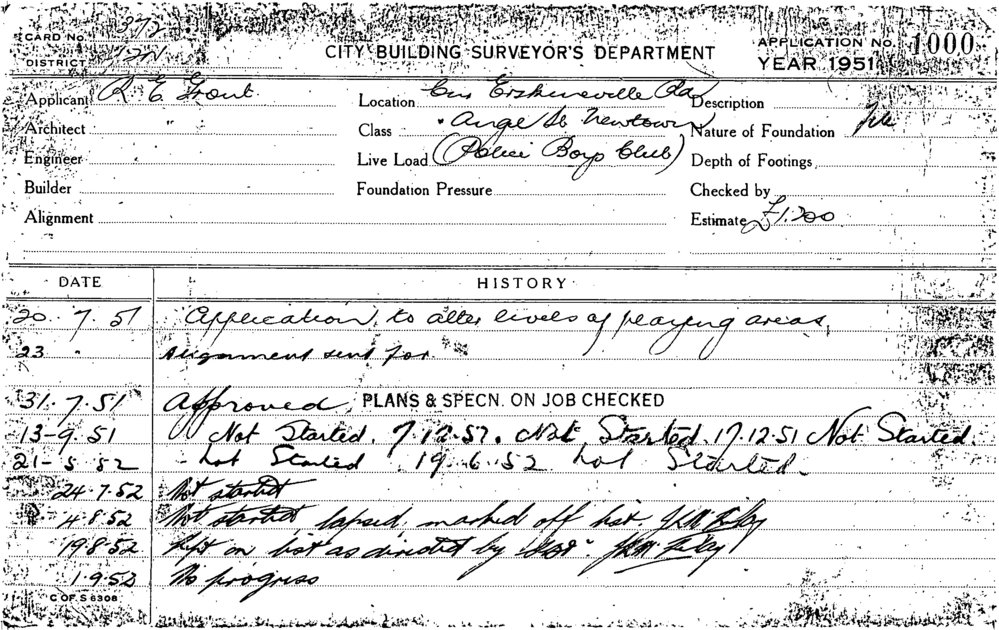 CARD No. 372
DISTRICT
CITY BUILDING SURVEYOR'S DEPARTMENT
APPLICATION No. 1000
YEAR 1951
Applicant R. E. Grout
Location Cnr Erskineville Rd
Description
Architect "
Class Angel St Newtown
Nature of Foundation
Engineer
Live Load (Police Boys Club)
Depth of Footings
Builder
Foundation Pressure
Checked by
Alignment
Estimate £1,200
DATE HISTORY
20. 7. 51 Application to alter levels of playing areas.
23 " Alignment sent for
31. 7. 51 Approved. PLANS & SPECN. ON JOB CHECKED
13-9. 51 Not Started. 7.12.51. Not Started. 17.12.51 Not Started.
21-5 52 - Not Started 19.6.52 Not Started.
24.7.52 Not started
4.8.52 Not started, lapsed, marked off list.
19.8.52 Kept on list as directed by
1.9.52 No progress
C OF S 6308